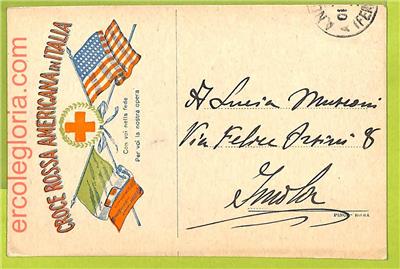 ercolegloria.com
CROCE ROSSA AMERICANA IN ITALIA
Con voi nella fede
Per voi la nostra opera
A Lucia
Via Felice Orsini 8
Imola
ROMA